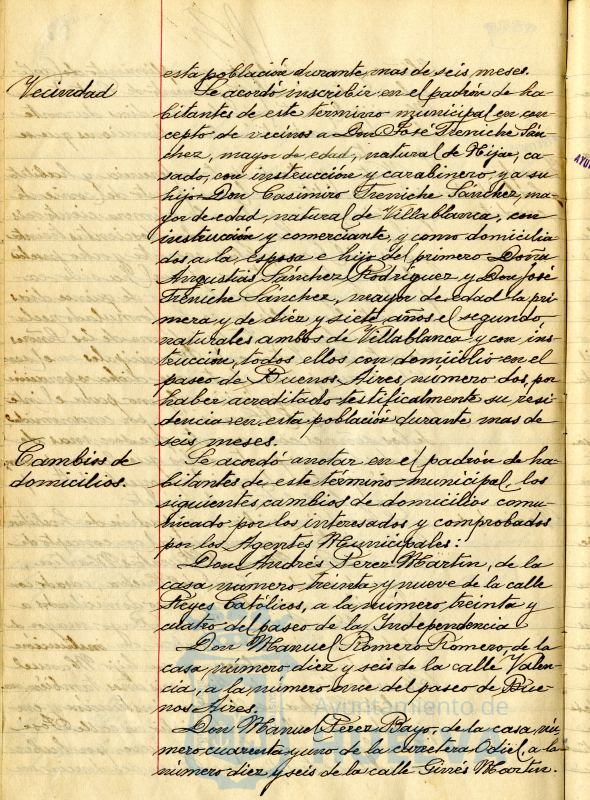 esta población durante mas de seis meses.
Vecindad
Se acordó inscribir en el padrón de ha-
bitantes de este término municipal en con-
cepto de vecinos a Don José Freniche Sán-
chez, mayor de edad, natural de Hijar, ca-
sado, con instrucción y carabinero, y a su
hijo Don Casimiro Freniche Sánchez, ma-
yor de edad, natural de Villablanca, con
instrucción y comerciante, y como domicilia-
dos a la esposa e hijo del primero Doña
Angustias Sánchez Rodríguez y Don José
Freniche Sánchez, mayor de edad la pri-
mera y de diez y siete años el segundo
naturales ambos de Villablanca y con ins-
trucción, todos ellos con domicilio en el
paseo de Buenos Aires, número dos, por
haber acreditado testificalmente su resi-
dencia en esta población durante mas de
seis meses.
Cambios de
domicilios.
Se acordó anotar en el padrón de ha-
bitantes de este término municipal, los
siguientes cambios de domicilios comu-
nicado por los interesados y comprobados
por los Agentes Municipales:
Don Andrés Perez Martin, de la
casa número treinta y nueve de la calle
Reyes Católicos, a la número treinta y
cuatro del paseo de la Independencia
Don Manuel Romero Romero, de la
casa número diez y seis de la calle Valen-
cia, a la número once del paseo de Bue-
nos Aires.
Don Manuel Pérez Bayo, de la casa nú-
mero cuarenta y uno de la carretera Odiel, a la
número diez y seis de la calle Ginés Martin.
Ayuntamiento de